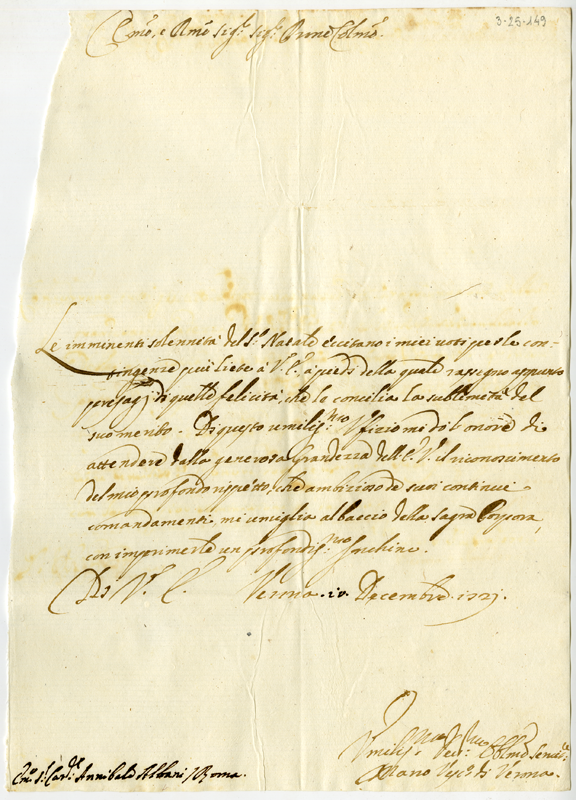 3-25-149
Emo, e Rmo Sig.r Sig.r Prone Colmo.
Le imminenti solennità del S.to Natale eccitano i miei voti per le con-
tingenze più liete à V. E. à piedi della quale rassegno appunto
presaggi di quelle felicità, che le concilia la sublimità del
suo merito. Di questo umiliss.mo offizio mi dò l'onore di
attendere dalla generosa Grandezza dell'E. V. il riconoscimento
del mio profondo rispetto, che ambizioso de suoi continui
comandamenti mi umiglia al baccio della Sagra Porpora,
con imprimerle un profondiss.mo Inchino.
Di V.ra E. Verona. 10. Decembre. 1721.
Umiliss.mo Devot.mo Obblmo Servit.re
Marco Vesc.o di Verona.
Emo S.r Card.le Annibale Albani / Roma.